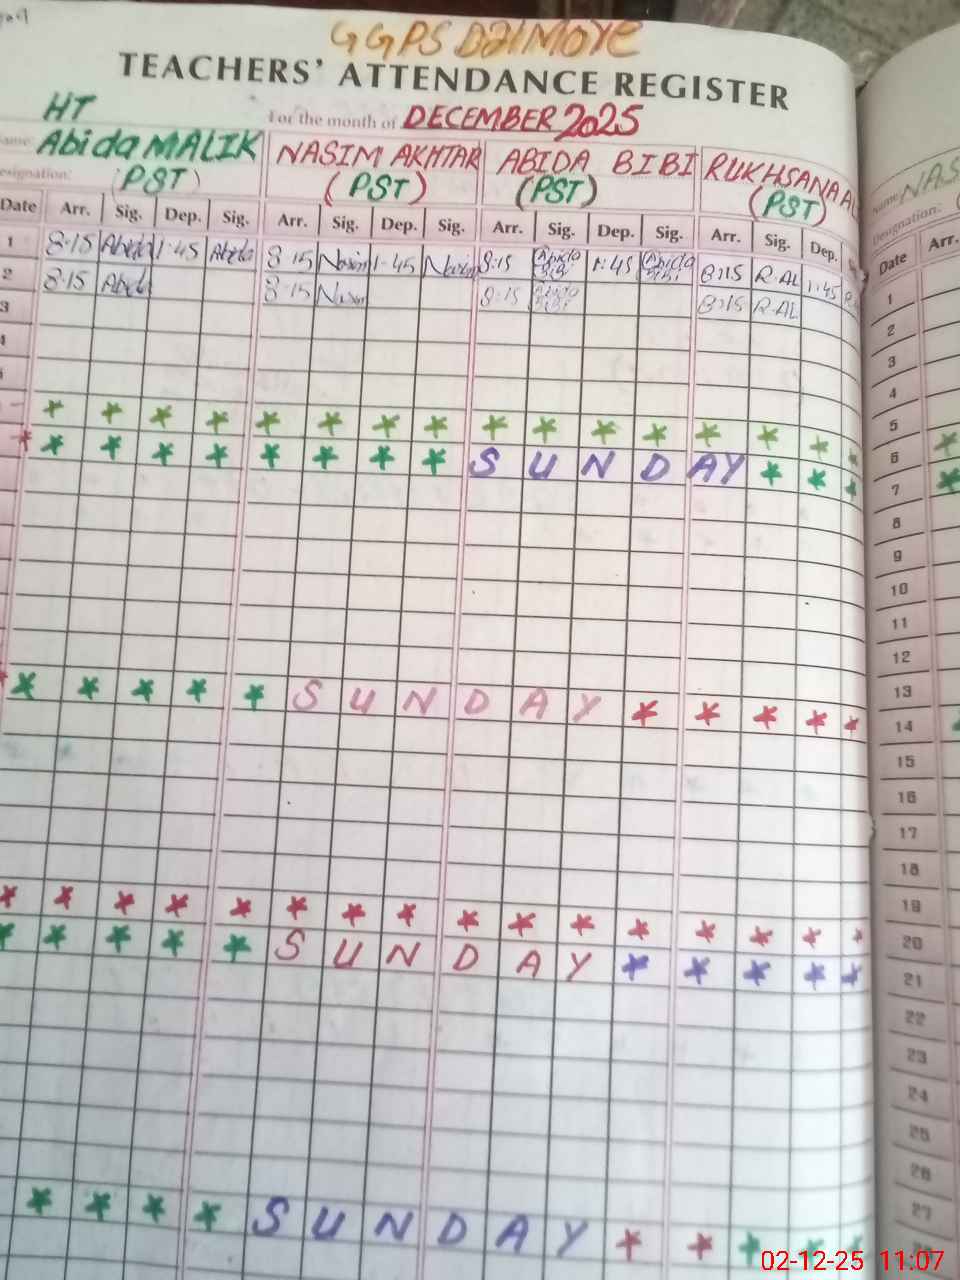 GGPS DalMOYE
TEACHERS' ATTENDANCE REGISTER
HT
For the month of DECEMBER 2025
Abida MALIK NASIM AKHTAR ABIDA BIBI RUKHSANA
esignation: (PST) (PST) (PST) (PST)
Date Arr. Sig. Dep. Sig. Arr. Sig. Dep. Sig. Arr. Sig. Dep. Sig. Arr. Sig. Dep.
1 8-15 Abida 1-45 Abida 8-15 Nasim 1-45 Nasim 8:15 Abida Bibi 1:45 Abida Bibi 8:15 R.AL 1:45
2 8-15 Abida 8-15 Nasim 8:15 Abida Bibi 8:15 R.AL
3
SUNDAY
SUNDAY
SUNDAY
SUNDAY
Name: NAS
Designation:
Date Arr.
1
2
3
4
5
6
7
8
9
10
11
12
13
14
15
16
17
18
19
20
21
22
23
24
25
26
27
02-12-25 11:07